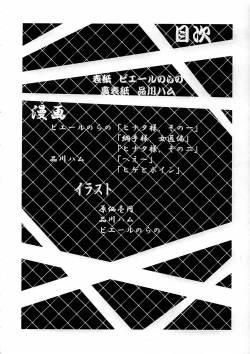 目次
表紙 ピエールのらの
裏表紙 品川ハム
漫画
ピエールのらの「ヒナタ様、その一」
「綱手様、女医伝」
「ヒナタ様、その二」
品川ハム 「へえー」
「ヒゲとボイン」
イラスト
原価壱円
品川ハム
ピエールのらの